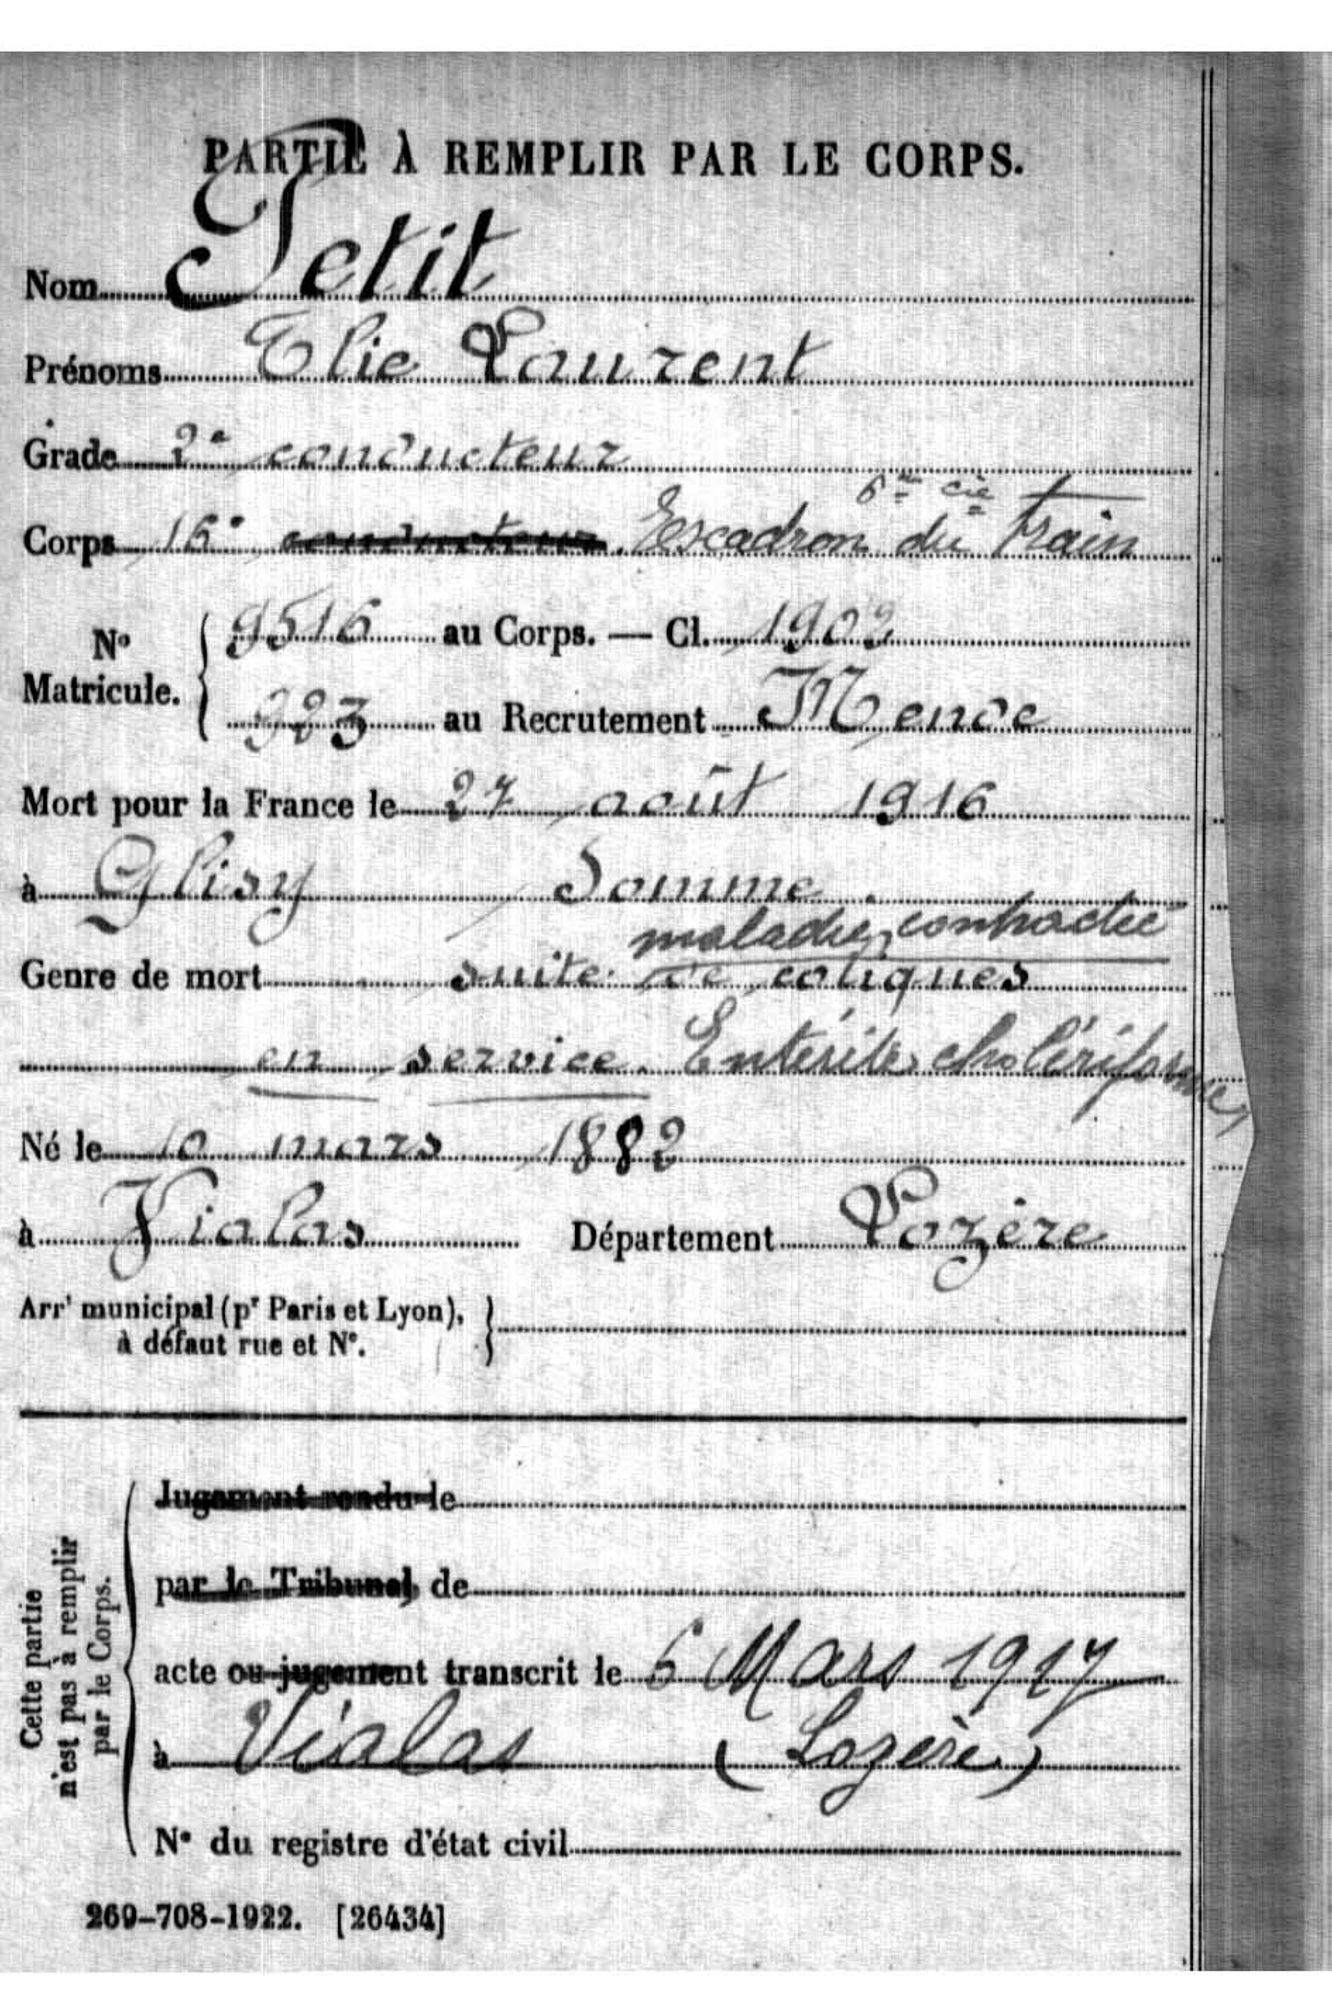 PARTIE À REMPLIR PAR LE CORPS.
Nom Petit
Prénoms Elie Laurent
Grade 2e conducteur
6e cie
Corps 16e conducteur Escadron du Train
N° Matricule. 9516 au Corps. — Cl. 1902
923 au Recrutement Mende
Mort pour la France le 27 août 1916
à Glisy Somme
maladie contractée
Genre de mort suite de coliques
en service. Entérite cholériforme
Né le 10 mars 1882
à Vialas Département Lozère
Arrt municipal (pr Paris et Lyon),
à défaut rue et N°.
Cette partie
n'est pas à remplir
par le Corps.
Jugement rendu le
par le Tribunal de
acte ou jugement transcrit le 6 Mars 1917
à Vialas (Lozère)
N° du registre d'état civil
269-708-1922. [26434]